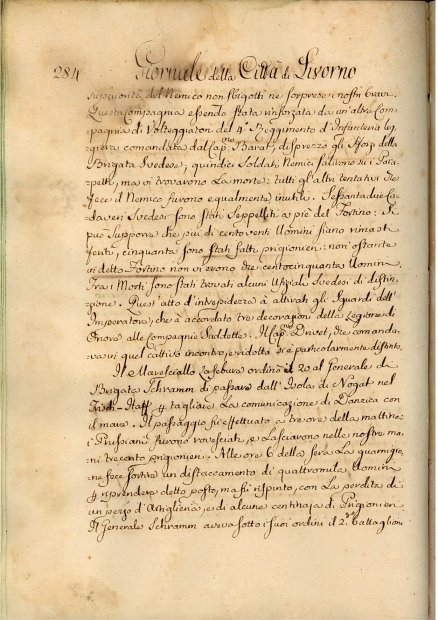 284 Giornale della Città di Livorno
superiorità del Nemico non sbigotti ne sorprese i nostri bravi.
Questa compagnia essendo stata rinforzata da un'altra Com-
pagnia di Volteggiatori del 4° Reggimento d'Infanteria leg-
giera comandata dal Cap.no Barat; disprezzò gli sforzi della
Brigata Svedese, quindici Soldati Nemici salirono su i Para-
petti, ma vi trovarono La morte: tutti gl'altri tentativi che
fece il Nemico furono egualmente inutili. Sessantadue Ca-
daveri Svedesi sono stati Seppelliti a piè del Fortino: Si
può Supporre che più di centoventi Uomini siano rimasti
feriti, cinquanta sono stati fatti prigionieri: non ostante
in detto Fortino non vi erono che centocinquanta Uomini.
Fra i Morti sono stati trovati alcuni Ufiziali Svedesi di distin-
zione. Quest'atto d'intrepidezza à attirati gli Sguardi dell'
Imperatore, che à accordato tre decorazioni della Legione di
Onore alle Compagnie Suddette. Il Cap.no Drivet, che comanda-
va in quel cattivo incontro, e ridotto si è particolarmente distinto.
Il Maresciallo Lefebvre ordinò il 20 al Generale di
Brigata Schramm di passare dall'Isola di Nogat nel
Frisch-Haff p tagliare La comunicazione di Danzica con
il mare. Il passaggio si effettuato a tre ore della mattina:
i Prussiani furono rovesciati, e Lasciarono nelle nostre ma-
ni trecento prigionieri. Alle ore 6 della sera La guarnigio-
ne fece sortire un distaccamento di quattromila Uomini
p riprendere detto posto, ma fu rispinto, con La perdita di
un pezzo d'Artiglieria, e di alcune centinaja di Prigionieri
Il Generale Schramm aveva sotto i suoi ordini il 2.do battaglion